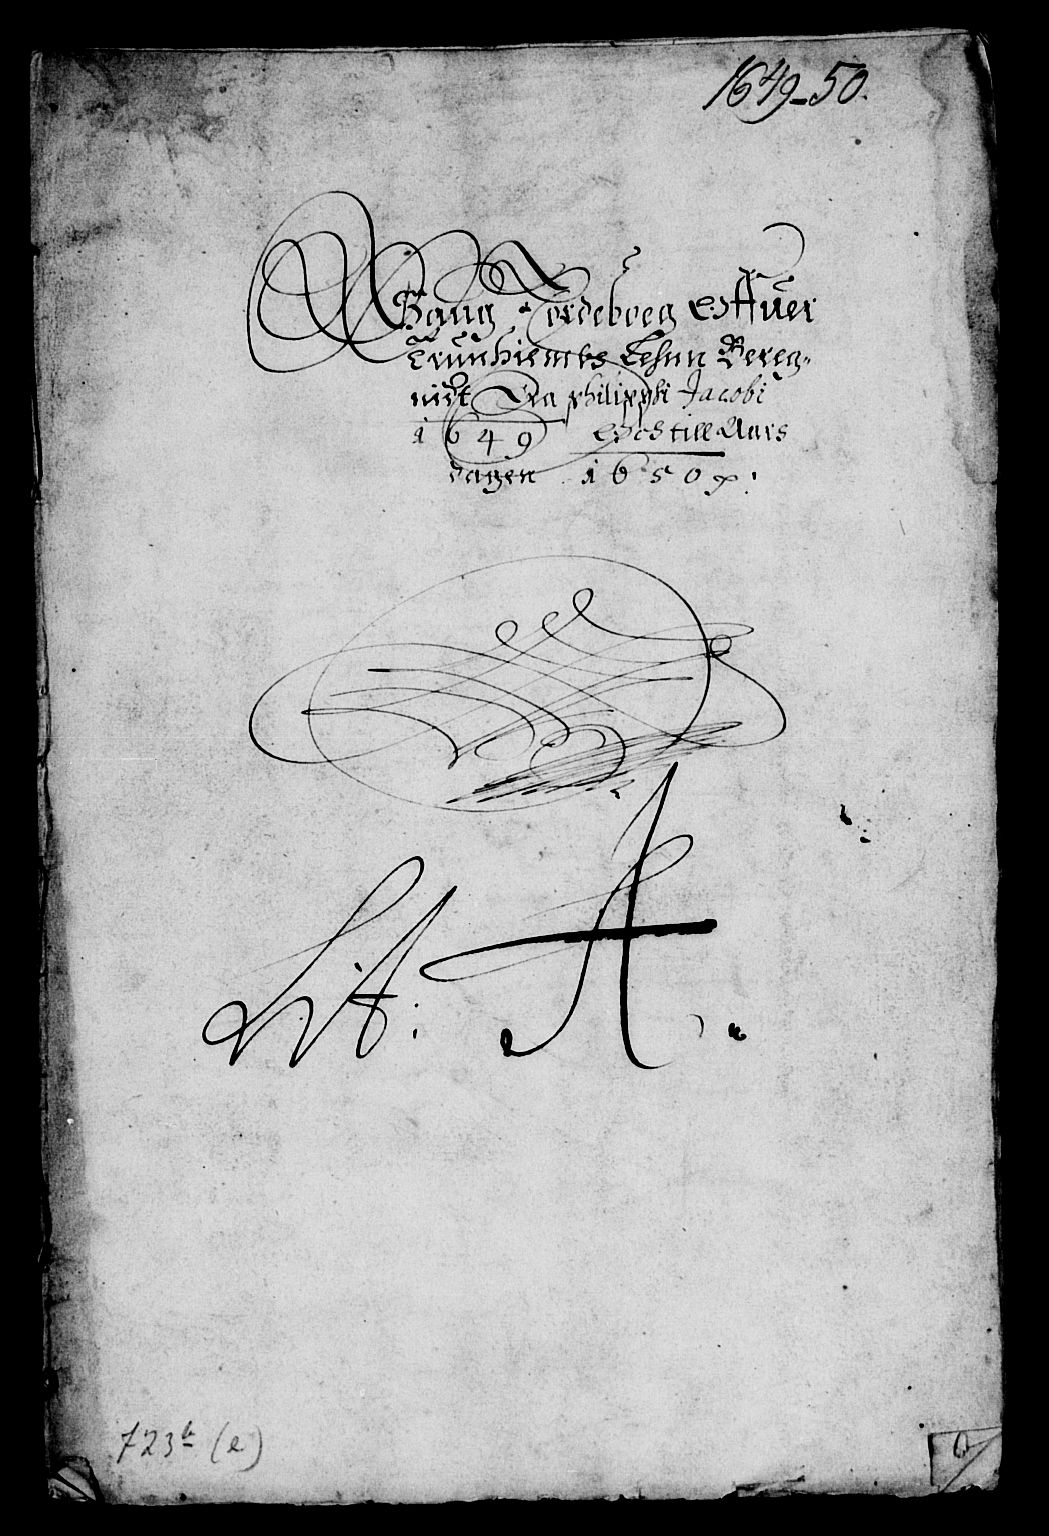 1649-50.
Gang Jordeboeg Offuer
Trundhiembs Lehnn Bereg-
nidt Fra Philippi Jacobi
1649 Och till Aars
dagen 1650
Lit: A.
723 b (e)